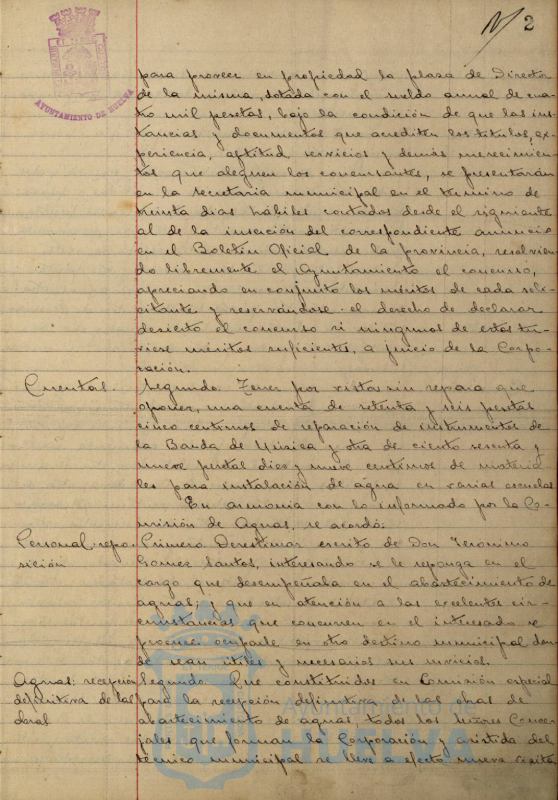 2
AYUNTAMIENTO DE HUELVA
para proveer en propiedad la plaza de Director
de la misma, dotada con el sueldo anual de cua-
tro mil pesetas, bajo la condición de que las ins-
tancias y documentos que acrediten los titulos, ex-
periencia, aptitud servicios y demás merecimien-
tos que aleguen los concursantes, se presentarán
en la Secretaria municipal en el termino de
treinta dias hábiles contados desde el siguiente
al de la inserción del correspondiente anuncio
en el Boletin Oficial de la provincia, resolvien-
do libremente el Ayuntamiento el concurso,
apreciando en conjunto los méritos de cada soli-
citante y reservándose el derecho de declarar
desierto el concurso si ningunos de estos tu-
viese méritos suficientes, a juicio de la Corpo-
ración.
Cuentas. Segundo. Tener por vistas sin reparo que
oponer, una cuenta de setenta y seis pesetas
cinco centimos de reparación de instrumentos de
la Banda de Música y otra de ciento sesenta y
nueve pesetas diez y nueve centimos de materia
les para instalación de agua en varias escuelas
En armonia con lo informado por la Co-
misión de Aguas, se acordó:
Personal: repo- Primero. Desestimar escrito de Don Jeronimo
sición Gomez Santos, interesando se le reponga en el
cargo que desempeñaba en el abastecimiento de
aguas; y que en atención a las excelentes cir-
cunstancias que concurren en el interesado se
procure ocuparle en otro destino municipal don-
de sean utiles y necesarios sus servicios.
Aguas: recepción Segundo. Que constituidos en Comisión especial
definitiva de las para la recepción definitiva de las obras de
obras abastecimiento de aguas, todos los Señores Conce-
jales que forman la Corporación y asistida del
técnico municipal se lleve a efecto nueva visita
Ayuntamiento de
HUELVA